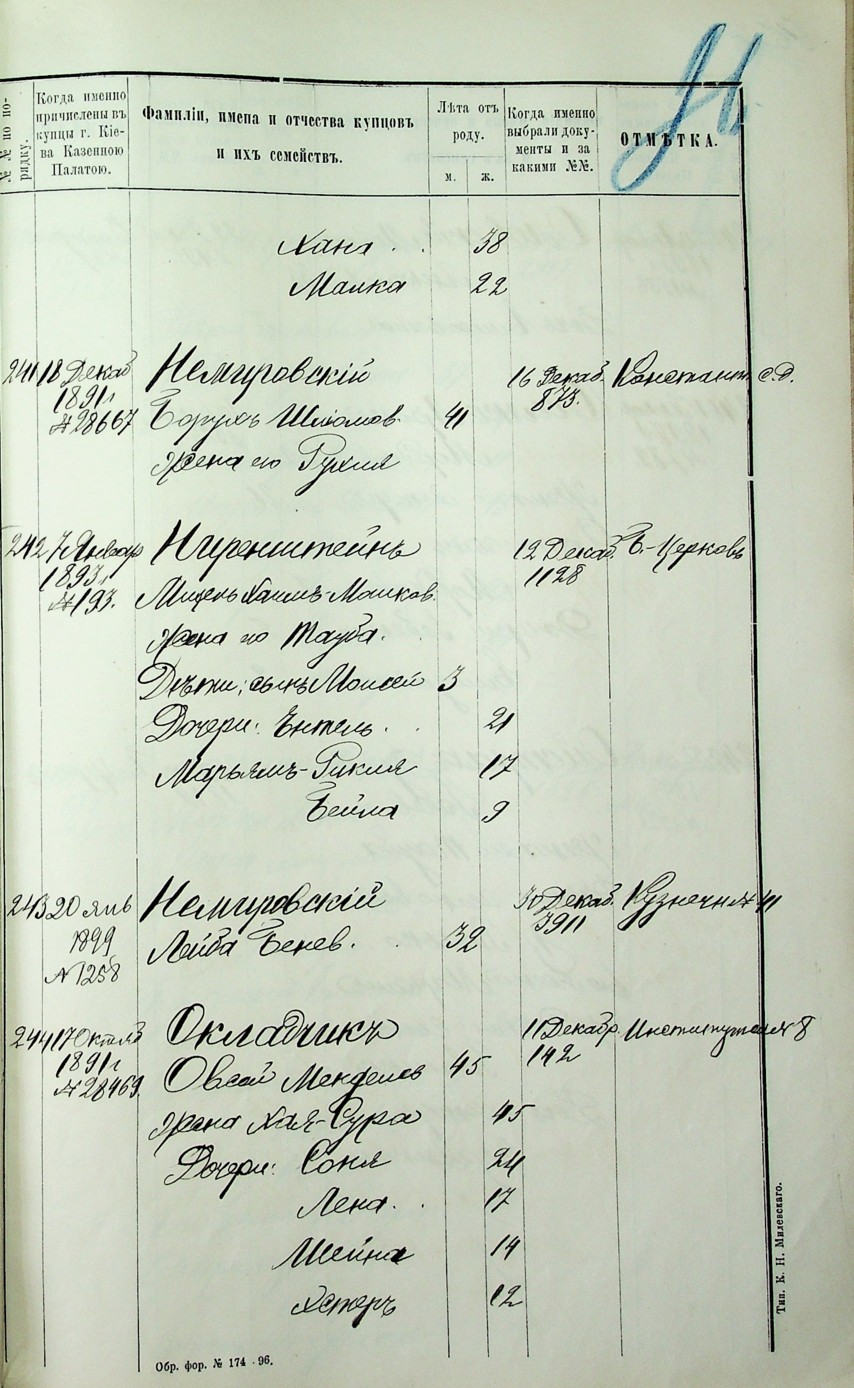 №№ по по-
рядку.
Когда именно
причислены въ
купцы г. Кіе-
ва Казенною
Палатою.
Фамиліи, имена и отчества купцовъ
и ихъ семействъ.
Лѣта отъ
роду.
м. ж.
Когда именно
выбрали доку-
менты и за
какими №№.
ОТМѢТКА.
Хана 38
Малка 22
241 18 Декаб Немировскій 16 Декаб. Константин. с. д.
1891 г. 873.
№ 28667 Борухъ Шліомов. 41
Жена его Рухля
242 7 Январ Ниренштейнъ 12 Декаб. Б.-Церковь
1893 г. 1128
№ 193. Хаимъ
Жена его Тауба.
Дѣти: сынъ Моисей 3
Дочери: Ентель. 21
Марьямъ-Рикля 17
Бейла 9
243 20 Янв Немировскій 30 Декаб. Кузнечн № 41
1899 3911
№ 1258 Лейба Бенев. 32
244 17 Октяб Окладчикъ 11 Декабр. № 8
1891 г. 142
№ 28469. Овсей Менделев 45
Жена Хая-Сура 45
Дочери: Соня 24
Лена. 17
Шейна 14
Хстеръ 12
Обр. фор. № 174 - 96.
Тип. К. Н. Милевскаго.